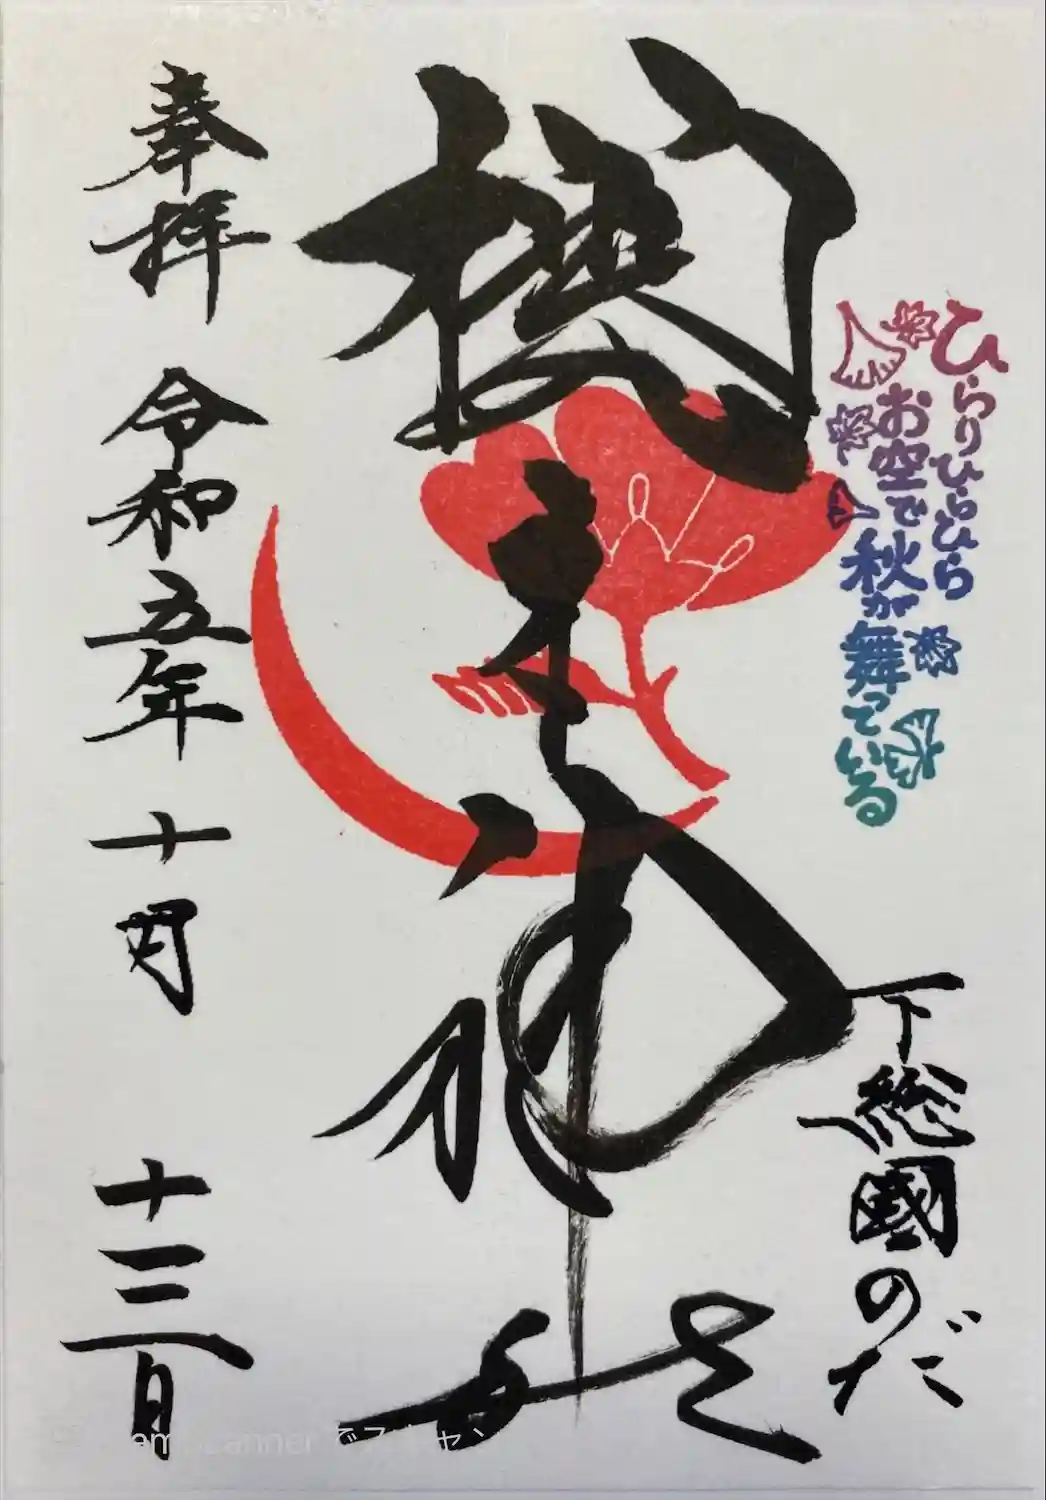 ひらりひらひら
お空で秋が舞っている
下総國のだ
櫻木神社
奉拝
令和五年 十月 十三日